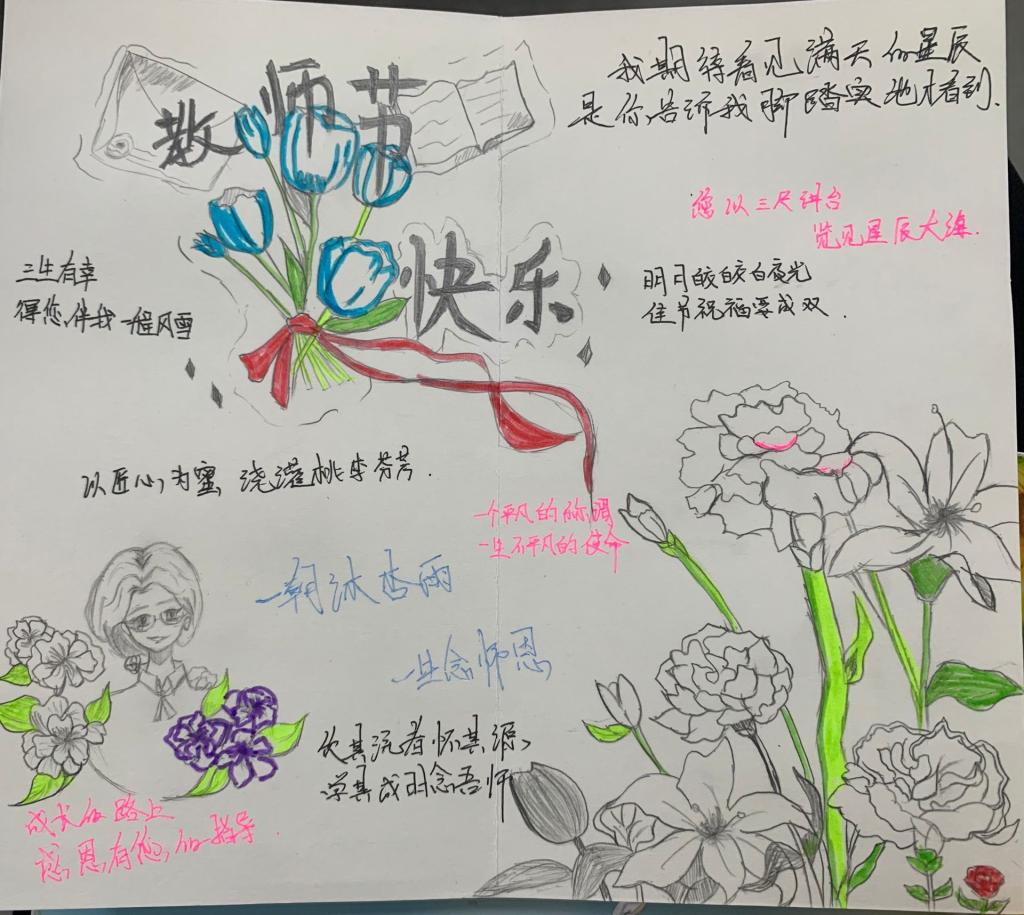 教师节
快乐
我期待看见满天的星辰
是你告诉我脚踏实地才看到.
您以三尺讲台
览见星辰大海.
明月皎皎白夜光
佳节祝福要成双.
三生有幸
得您伴我一程风雪
以匠心为蜜 浇灌桃李芬芳.
一个平凡的称谓
一生不平凡的使命
一朝沐杏雨
一生念师恩
饮其流者怀其源、
学其成时念吾师
成长的路上
感恩有您的指导.